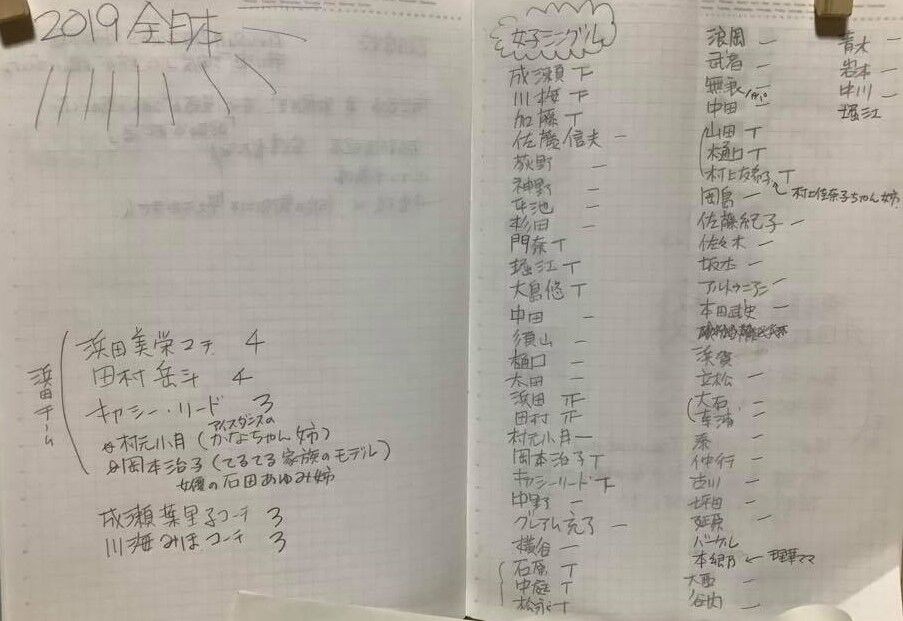 2019 全日本
浜田チーム
浜田美栄コーチ 4
田村岳斗 4
キャシー・リード 3
アイスダンスの
村元小月(かなちゃん姉)
岡本治子(てるてる家族のモデル)
女優の石田あゆみ姉
成瀬葉里子コーチ 3
川梅みほコーチ 3
女子シングル
成瀬 下
川梅 下
加藤 T
佐藤信夫 一
荻野 一
神野 一
杉田 一
門奈 T
堀江 T
大島悠 T
中田 一
須山 一
樋口 一
太田 一
浜田 正
田村 正
村元小月 一
岡本治子 T
キャシーリード 下
中野 一
グレアム充子 一
横谷 一
石原 T
中庭 T
松永 T
浪岡 一
武者 一
無良 一
中田 一
山田 T
樋口 T
村上友希子 T
村上佳奈子ちゃん姉
岡島 一
佐藤紀子 一
佐々木 一
坂本 一
アルトゥニアン 一
本田武史 一
浜賀
立松 一
大石 一
秦 一
仲行 一
古川 一
坪田 一
延原 一
バーケル
本郷乃 ← 理華ママ
大西 一
谷内 一
青木 一
岩本 一
中川 一
堀江